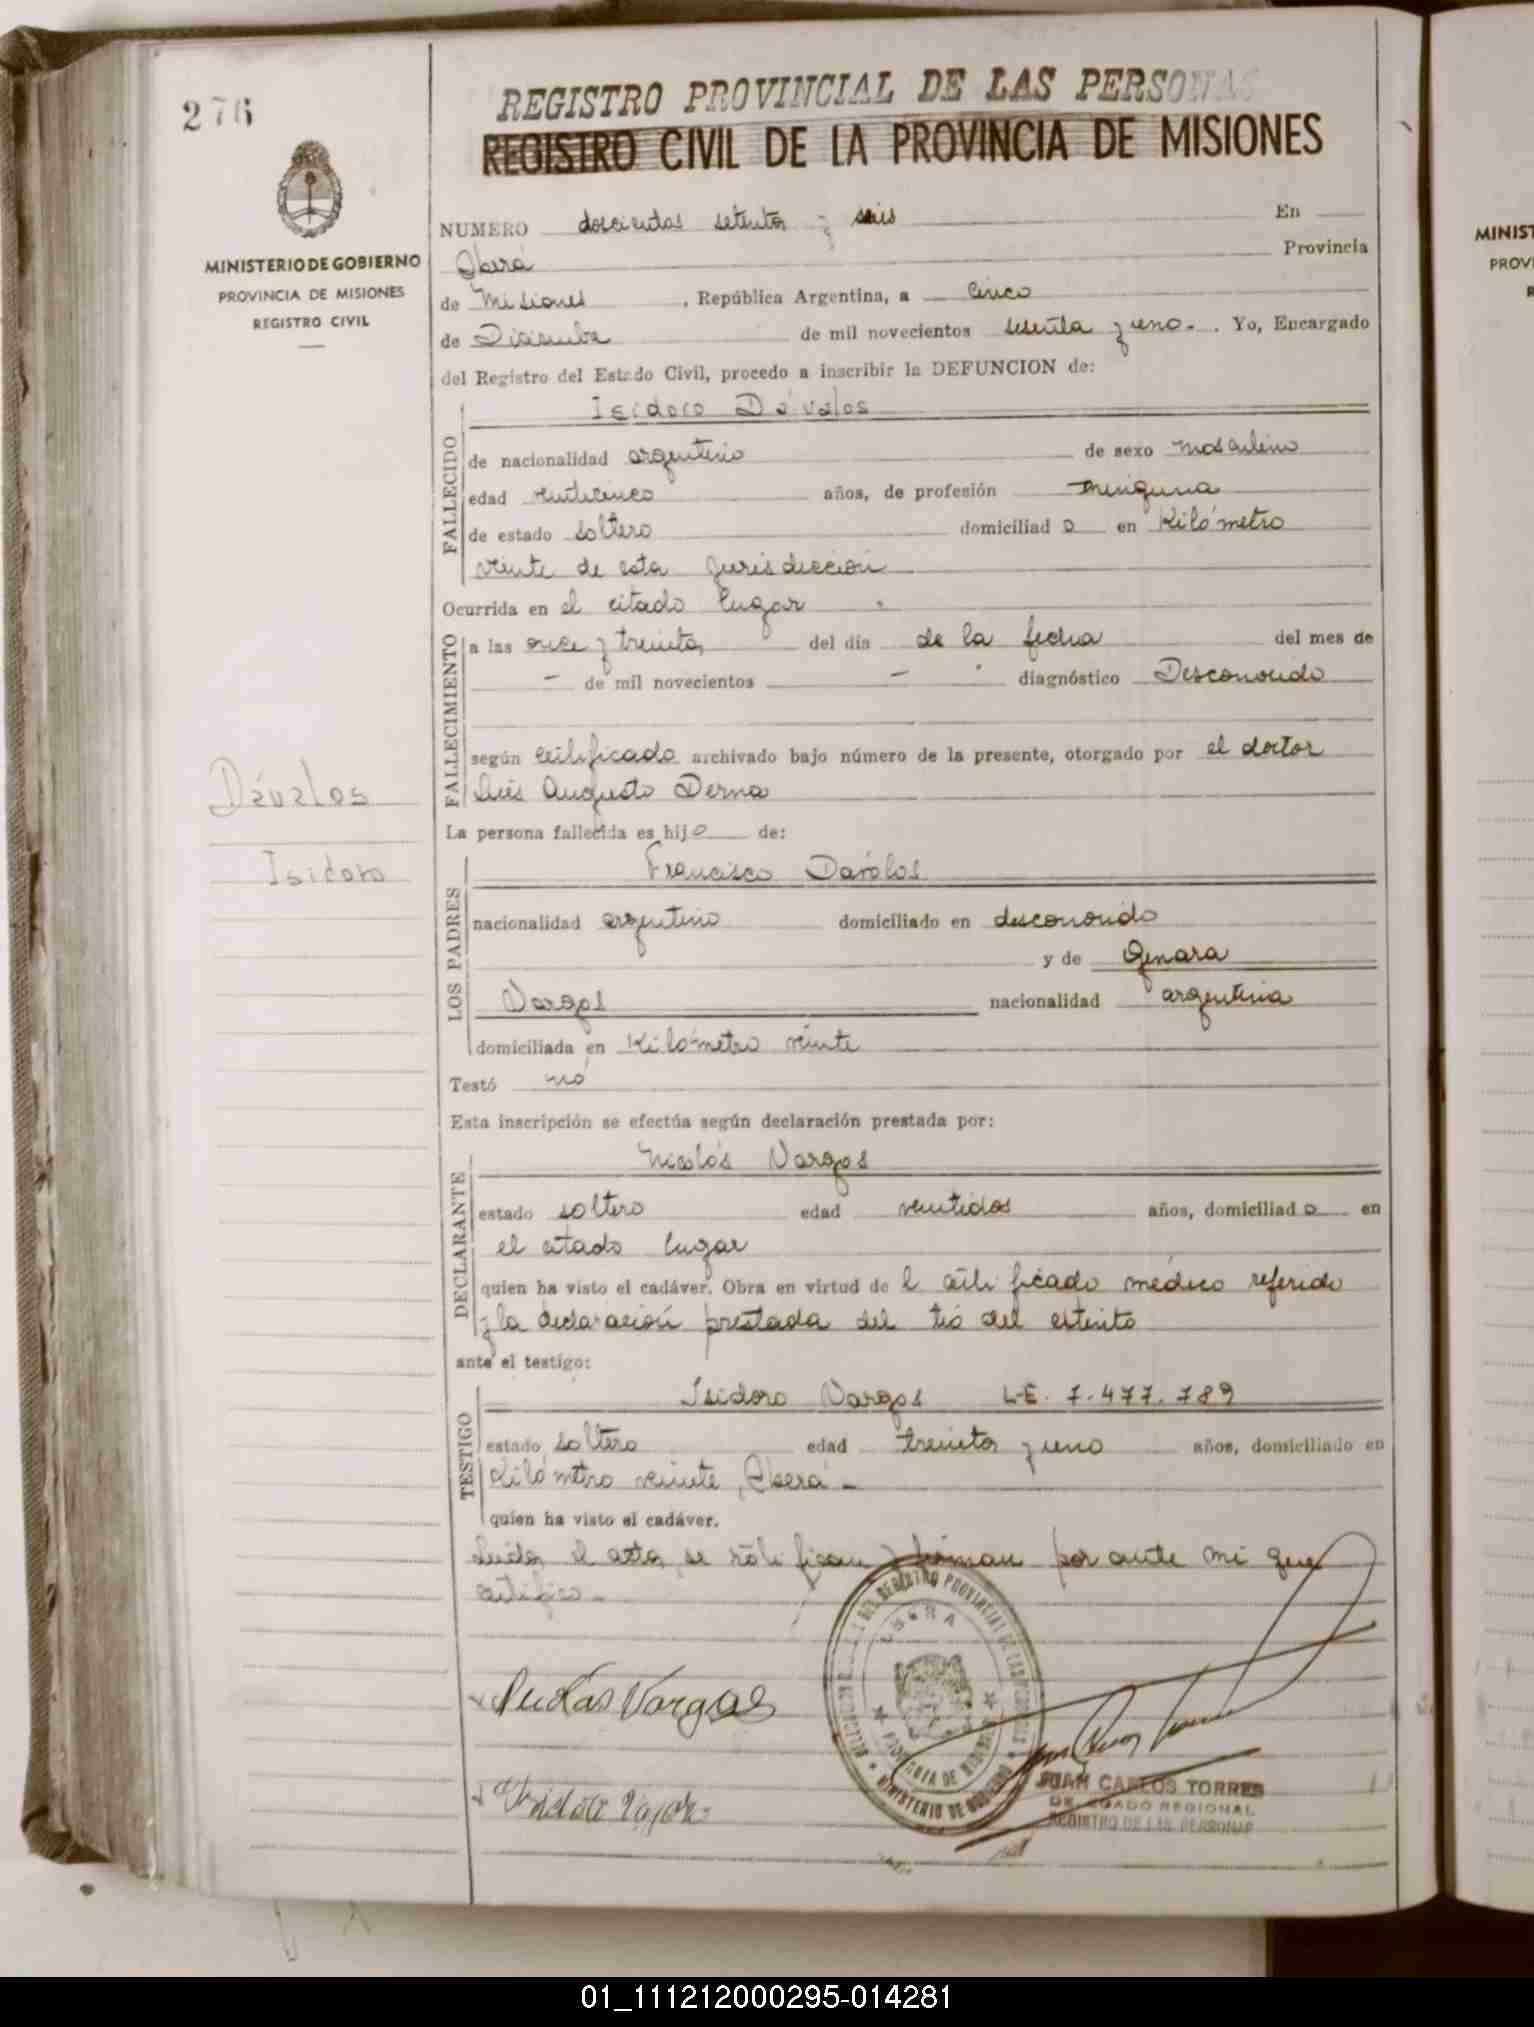 276
REGISTRO PROVINCIAL DE LAS PERSONAS
REGISTRO CIVIL DE LA PROVINCIA DE MISIONES
MINISTERIO DE GOBIERNO
PROVINCIA DE MISIONES
REGISTRO CIVIL
NUMERO doscientos setenta y seis En
Oberá Provincia
de Misiones , República Argentina, a cinco
de Diciembre de mil novecientos sesenta y uno.- . Yo, Encargado
del Registro del Estado Civil, procedo a inscribir la DEFUNCION de:
Isidoro Dávalos
FALLECIDO
de nacionalidad argentino de sexo masculino
edad veinticinco años, de profesión ninguna
de estado soltero domiciliad o en Kilómetro
veinte de esta jurisdicción
Ocurrida en el citado lugar
FALLECIMIENTO
a las once y treinta del día de la fecha del mes de
- de mil novecientos - diagnóstico Desconocido
según certificado archivado bajo número de la presente, otorgado por el doctor
Luis Augusto Derna
Dávalos
Isidoro
La persona fallecida es hij o de:
LOS PADRES
Francisco Dávalos
nacionalidad argentino domiciliado en desconocido
y de Genara
Vargas nacionalidad argentina
domiciliada en Kilómetro veinte
Testó nó
Esta inscripción se efectúa según declaración prestada por:
DECLARANTE
Nicolás Vargas
estado soltero edad veintidos años, domiciliad o en
el citado lugar
quien ha visto el cadáver. Obra en virtud de l certificado médico referido
y la declaración prestada del tío del extinto
ante el testigo:
TESTIGO
Isidoro Vargas L.E. 7.477.789
estado soltero edad treinta y uno años, domiciliado en
Kilómetro veinte, Oberá -
quien ha visto el cadáver.
Leída el acta, se ratifican y firman por ante mi que
certifico.-
Nicolás Vargas
Isidoro Vargas
DELEGACION DEL REGISTRO PROVINCIAL DE LAS PERSONAS
OBERA
PROVINCIA DE MISIONES
MINISTERIO DE GOBIERNO
JUAN CARLOS TORRES
DELEGADO REGIONAL
REGISTRO DE LAS PERSONAS
MINIST
PROVI
R
01_111212000295-014281